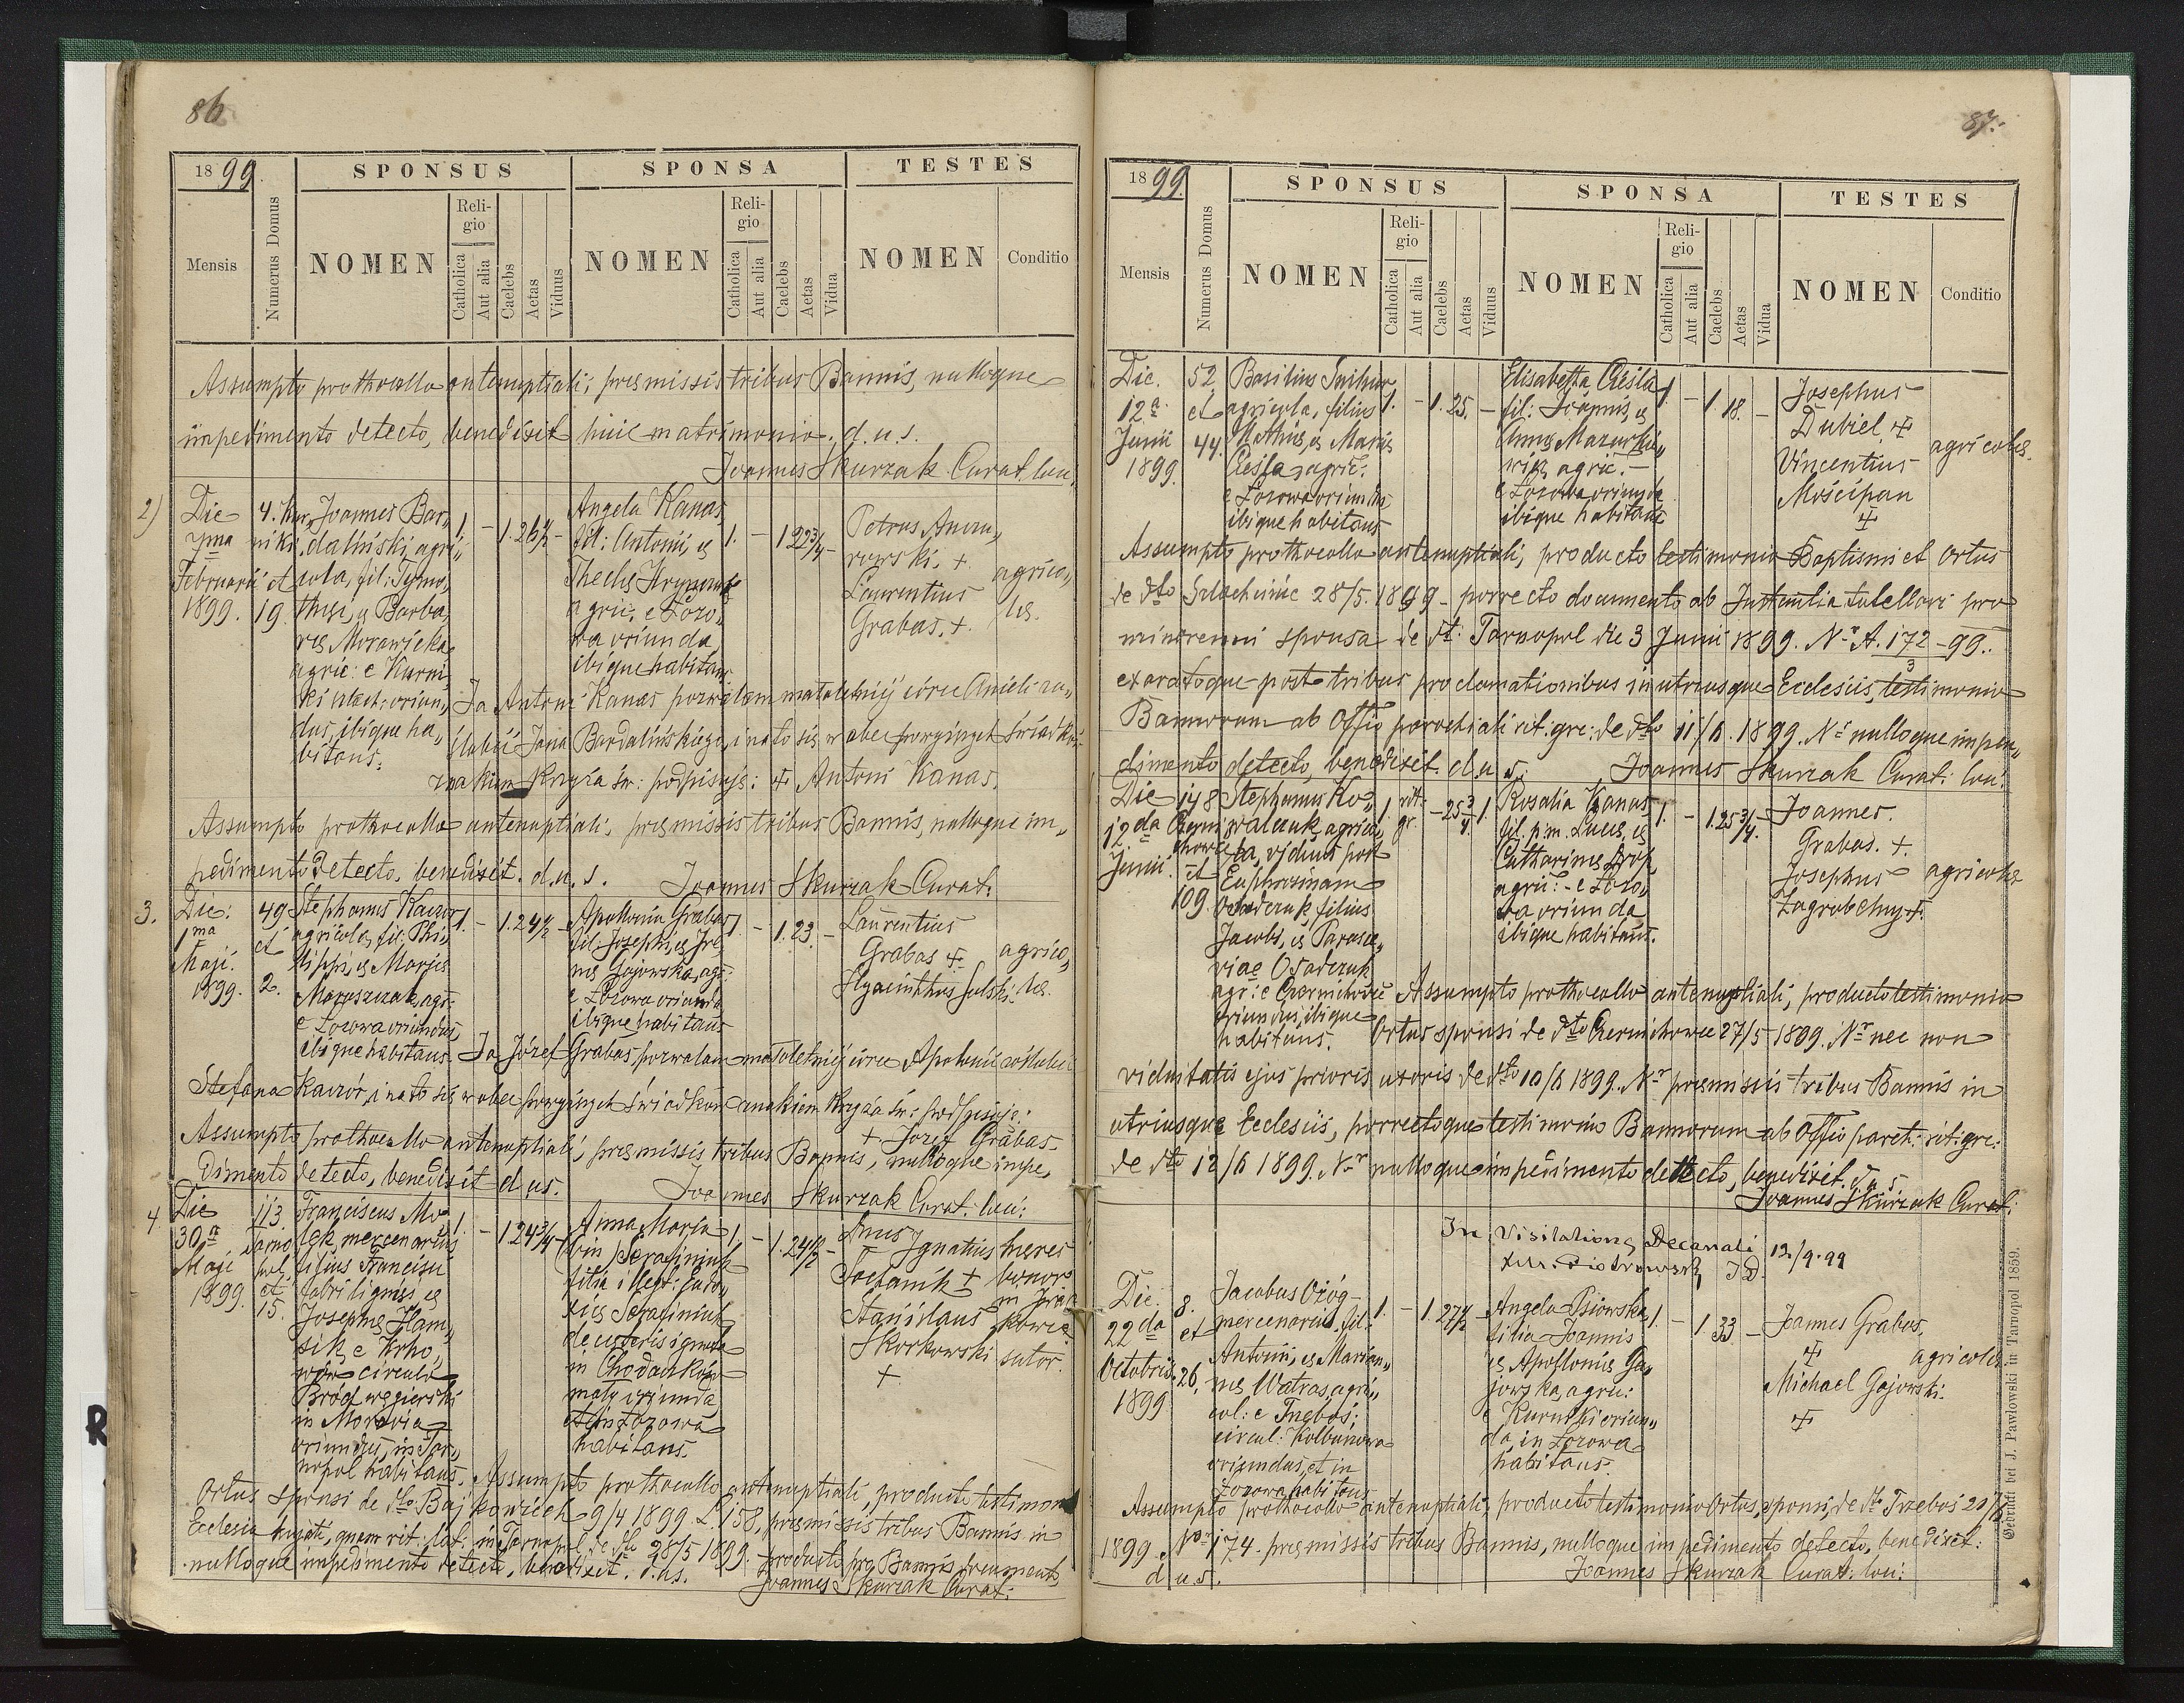 86
1899.
SPONSUS
SPONSA
TESTES
Mensis
Numerus Domus
NOMEN
Religio
Catholica
Aut alia
Caelebs
Aetas
Viduus
NOMEN
Religio
Catholica
Aut alia
Caelebs
Aetas
Vidua
NOMEN
Conditio
Assumpto prothocollo antenuptiali, præmissis tribus Bannis, nulloque
impedimento detecto, benedixit huic matrimonio. d. u. s.
Joannes Skurzak Curat. loci.
2)
Die
7ma
Februarii
1899.
4. Kur„
niki
et
19.
Joannes Bar„
daliński, agri„
cola, fil: Tymo„
thei, & Barba„
ræ Morawicka
agric: e Kurni„
ki
orian„
dus, ibique ha„
bitans.
1. - 1. 26½ -
Angela Kanas,
fil: Antonii, &
Theclæ
agric. e Łozo„
wa oriunda
ibique habitans.
1. - 1 22¾ -
Petrus
rowski. +
Laurentius
Grabas. +
agrico„
læ.
Ja Antoni Kanas pozwalam małoletniéj córce Anieli za„
ślubić Jana Bardalińskiego, i na to się wobec powyższych świadków
znakiem Krzyża św: podpisuję: + Antoni Kanas.
Assumpto prothocollo antenuptiali, præmissis tribus Bannis, nulloque im„
pedimento detecto, benedixit. d. u. s. Joannes Skurzak Curat.
3.
Die:
1ma
Maji.
1899.
49
et
2.
Stephanus Kaczor
agricola, fil: Phi„
lippi, & Mariæ
Maruszczak, agr:
e Łozowa oriundus,
ibique habitans.
1. - 1. 24½ -
Apollonia Grabas
fil: Josephi, & Ire„
næ Gajowska, agr:
e Łozowa oriunda
ibique habitans
1. - 1. 23. -
Laurentius
Grabas +
Hyacinthus Sulski.
agrico„
læ.
Ja Józef Grabas, pozwalam małoletniéj córce Apolonii zaślubić
Stefana Kaczór, i na to się wobec powyższych świadków znakiem Krzyża św: podpisuję:
+ Józef Grabas.
Assumpto prothocollo antenuptiali, præmissis tribus Bannis, nulloque impe„
dimento detecto, benedixit d. u. s. Joannes Skurzak Curat. loci:
4.
Die
30a
Maji
1899.
113.
Tarno
pol.
et
15.
Franciscus Mo„
lek mercenarius
filius Francisci
fabri lignis, &
Josephæ Ham„
sik, e
circulo
Brod węgierski
in Moravia
oriundus, in Tar„
nopol habitans.
1. - 1. 24¾ -
Anna Maria
(bin) Serafiniuk
filia illegt: Eudo„
xiæ Serafiniuk
de cæteris ignota
in Chodaczków
mały oriunda
et in Łozowa
habitans.
1. - 1. 24½ -
Ignatius
Sochanik +
Stanislaus
Skorkowski
+
heres
bonor.
in
kowce
sutor.
Assumpto prothocollo antenuptiali, producto testimon
Ortus sponsi de dto Bajkowice 9/4 1899. L. 158, præmissis tribus Bannis in
Ecclesia hujati, quam rit: lat: in Tarnopol de dto 28/5 1899. producto pro Bannis
nulloque impedimento detecto, benedixit. d. u. s. Joannes Skurzak Curat:
87.
1899.
SPONSUS
SPONSA
TESTES
Mensis
Numerus Domus
NOMEN
Religio
Catholica
Aut alia
Caelebs
Aetas
Viduus
NOMEN
Religio
Catholica
Aut alia
Caelebs
Aetas
Vidua
NOMEN
Conditio
Die.
12a.
Junii
1899.
52,
et
44.
Basilius
agricola, filius
Mathiæ, & Mariæ
Cieśla agric:
e Łozowa oriundus
ibique habitans
1. - 1. 25. -
Elisabetha Cieśla
fil: Joannis, &
Annæ Mazurkie„
wicz agric. -
e Łozowa oriunda
ibique habitans
1. - 1 18. -
Josephus
Dubiel +
Vincentius
Mościpan
+
agricolæ.
Assumpto prothocollo antenuptiali, producto testimonio Baptismi et Ortus
de dto 28/5. 1899 - porrecto documento ab Instantia tutellari pro
minorenni sponsa de dt: Tarnopol die 3 Junii 1899. Nr A. 172/3 - 99.
exaratoque post tribus proclamationibus in utriusque Ecclesiis, testimonio
Bannorum ab Offio parochiali rit. gre: de dto 11/6. 1899. Nr nulloque impe„
dimento detecto, benedixit. d. u. s. Joannes Skurzak Curat. loci.
Die
12.da
Junii.
148
Czerni
chowce
et
109.
Stephanus Ko„
walczuk, agrico„
la, viduus post
Euphrosinam
Osadczuk, filius
Jacobi, & Parasce„
viae Osadczuk
agr: e Czernichowce
oriundus, ibique
habitans.
1. rit. gr. - 25¾ 1.
Rosalia Kanas
fil. p. m. Lucæ, &
Catharinæ
agric: - e Łozo„
wa oriunda
ibique habitans.
1. - 1. 25¾. -
Joannes.
Grabas. +
Josephus
Zagrobelny +
agricolæ
Assumpto prothocollo antenuptiali, producto testimonio
Ortus sponsi de dto Czernichowce 27/5 1899. Nr nec non
viduitatis ejus prioris uxoris de dto 10/6 1899. Nr præmissis tribus Bannis in
utriusque Ecclesiis, porrectoque testimonio Bannorum ab Offio paroch: rit: gre:
de dto 12/6 1899. Nr nulloque impedimento detecto, benedixit. d. u. s.
Joannes Skurzak Curat:
In Visitatione Decanali 12/9.99
Piotrowski
Die.
22da
Octobris
1899
8.
et
26,
Jacobus Ożóg -
mercenarius, fil:
Antonii, & Marian„
næ Watras, agri„
col: e Trzeboś:
circul: Kolbuszowa
oriundus, et in
Łozowa habitans
1. - 1. 27½ -
Angela Psiowska,
filia Joannis
& Apolloniæ Ga„
jowska, agric:
e Kurniki oriun„
da, in Łozowa
habitans.
1. - 1. 33 -
Joannes Grabas,
+
Michael Gajowski.
+
agricolæ
Assumpto prothocollo antenuptiali, producto testimonio Ortus, sponsi, de dto Trzeboś 20/
1899. Nro 174. præmissis tribus Bannis, nulloque impedimento detecto, benedixit:
d. u. s. Joannes Skurzak Curat. loci:
Gedruckt bei J. Pawłowski in Tarnopol 1859.